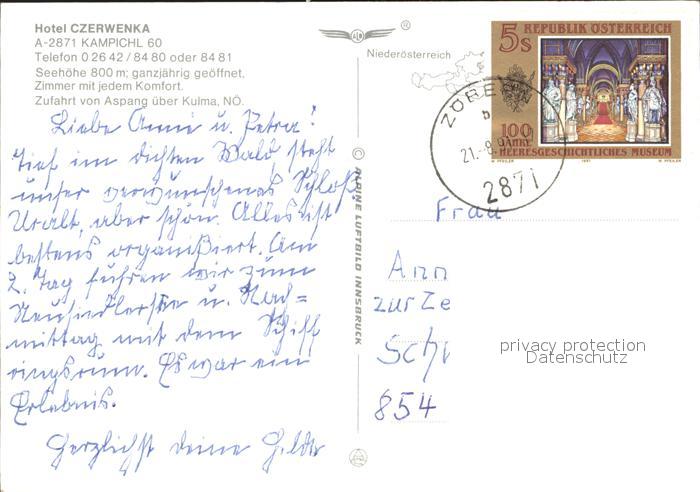 Hotel CZERWENKA
A-2871 KAMPICHL 60
Telefon 0 26 42 / 84 80 oder 84 81
Seehöhe 800 m; ganzjährig geöffnet,
Zimmer mit jedem Komfort.
Zufahrt von Aspang über Kulma, NÖ.
Liebe Anni u. Petra!
Tief im dichten Wald steht
unser verwunschenes Schloß.
Uralt, aber schön. Alles ist
bestens organisiert. Am
2. Tag fuhren wir zum
Neusiedlersee u. Nach=
mittag mit dem Schiff
ringsrum. Es war ein
Erlebnis.
Herzlichst deine Hilde
®
Niederösterreich
© ALPINE LUFTBILD INNSBRUCK
REPUBLIK ÖSTERREICH
5s
100
JAHRE
HEERESGESCHICHTLICHES MUSEUM
W. PFEILER 1991 W. PFEILER
ZÖBE
b
21.-8.
2871
Frau
Ann
zur Ze
Sch
854
privacy protection
Datenschutz